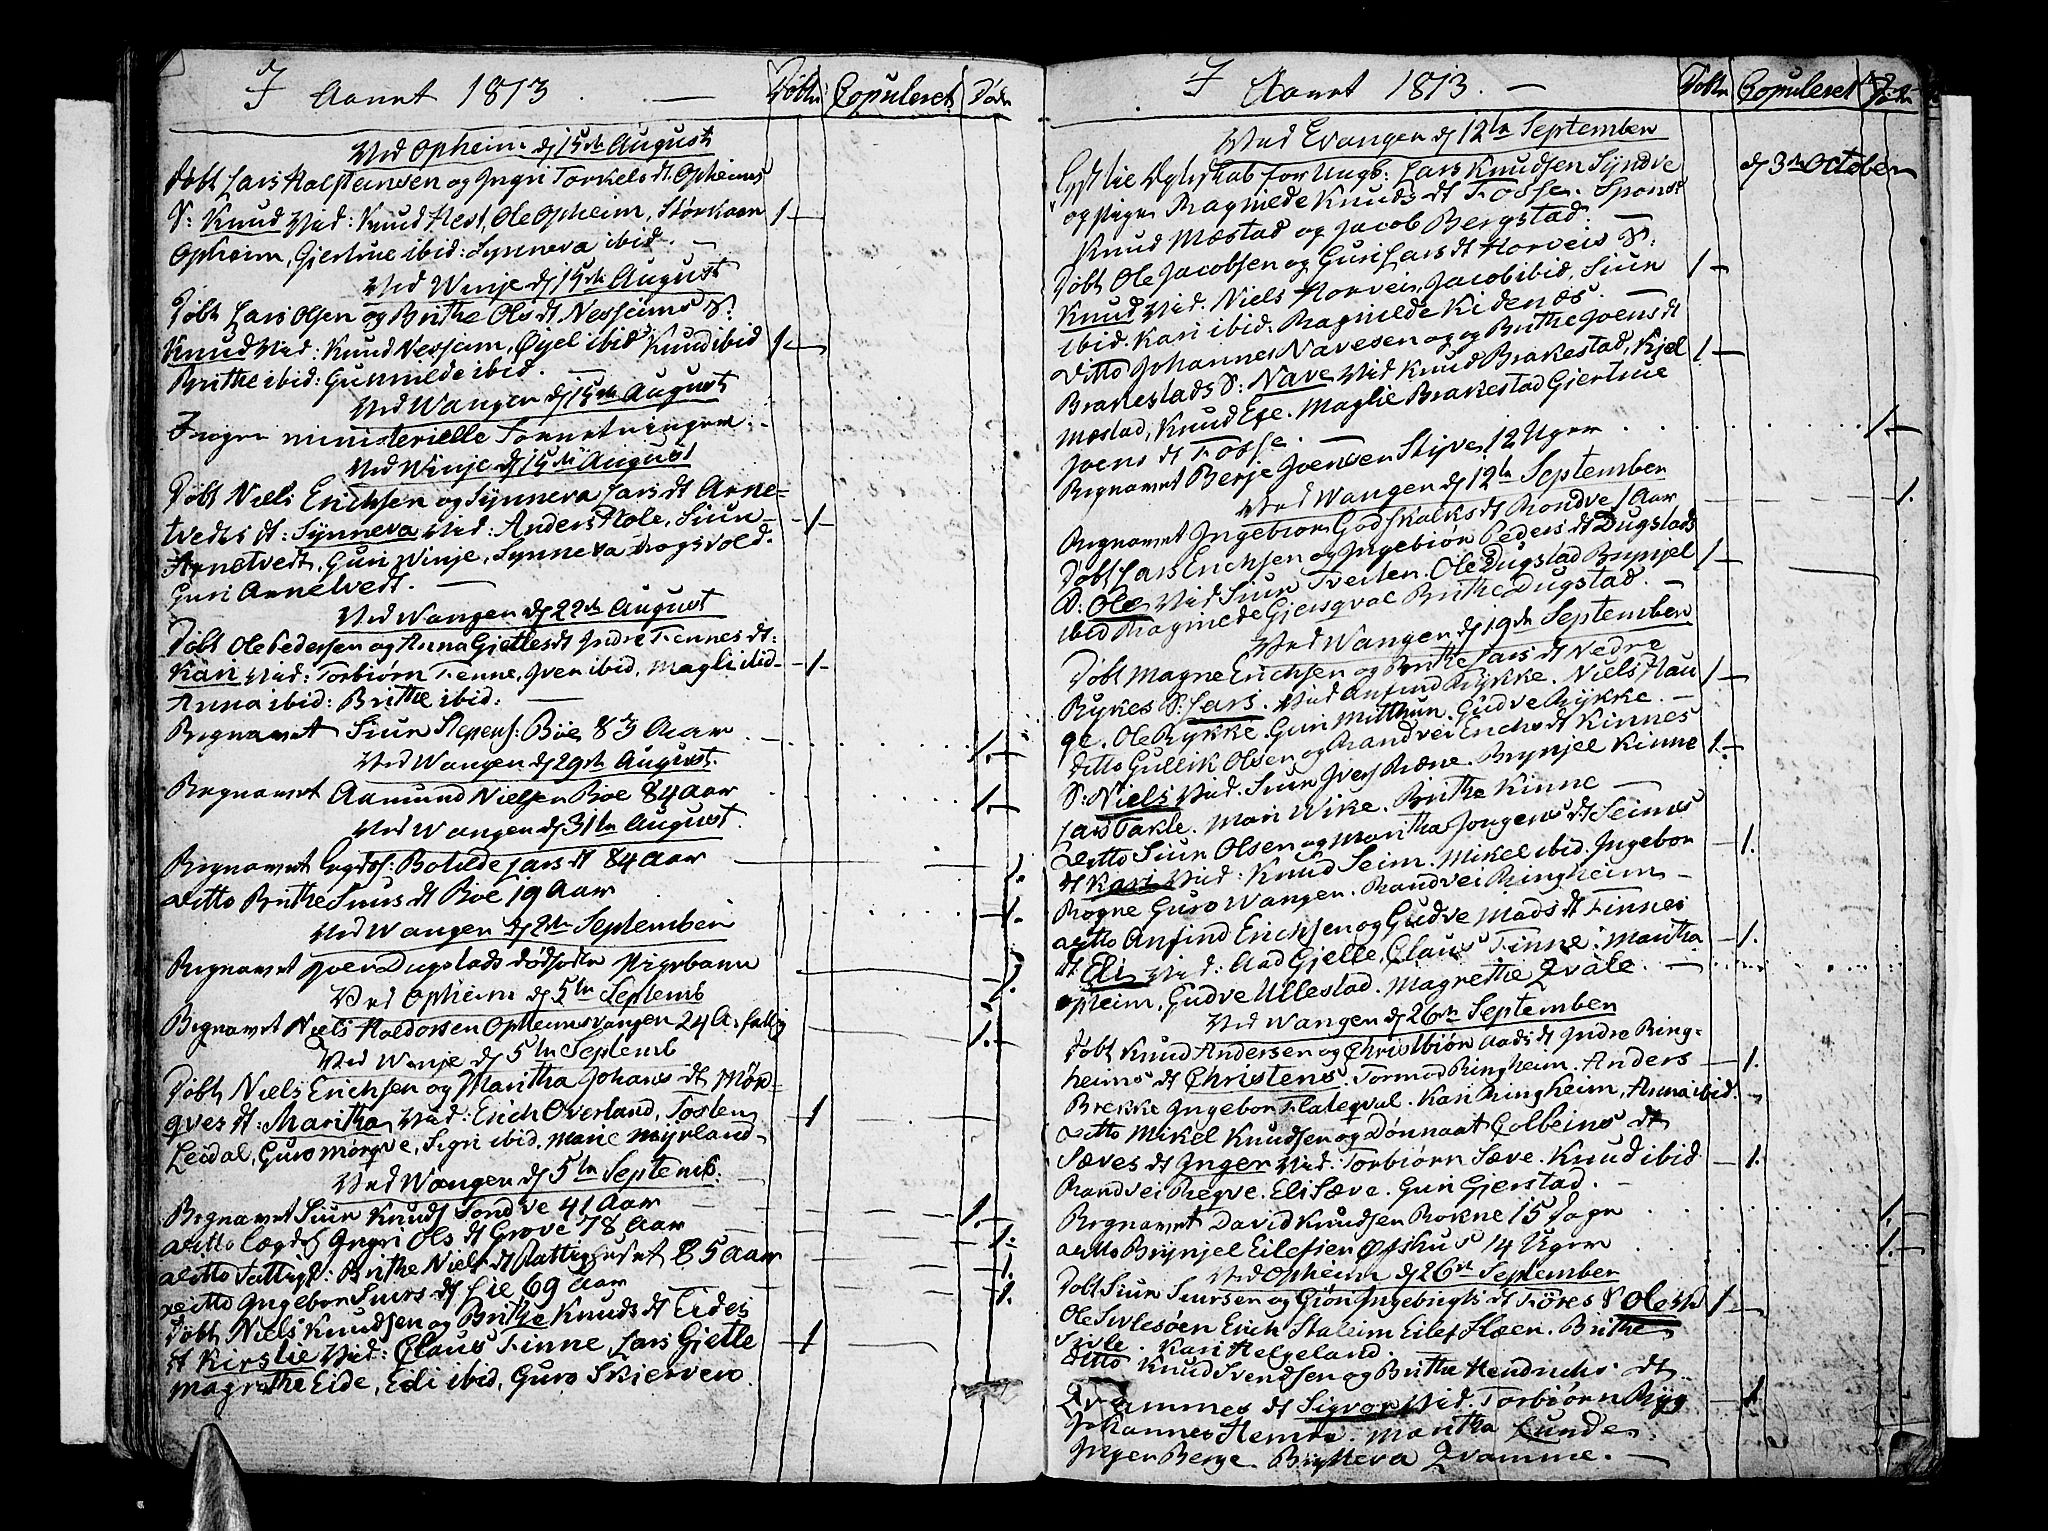 I Aaret 1813. — Døbte Copuleret Døde
Ved Opheim d 15de August
Døbt Lars Halsteinsen og Ingri Torkels dt Opheims
S: Knud Vid: Knud Hest, Ole Opheim, Størkaar 1
Opheim, Giertrue ibid: Synneva ibid. —
Ved Winje d 15de August
Døbt Lars Olsen og Brithe Ols dt Nesheims S:
Knud Vid: Knud Nesheim, ibid Knud ibid 1
Brithe ibid: Gunnilde ibid. —
Ved Wangen d 15de August
Ingen ministerielle Forretninger.
Ved Winje d 15de August
Døbt Niels Erichsen og Synneva Lars dt Arne-
tvedts dt: Synneva Vid: Anders Hole, Siur 1
Arnetvedt, Guri Winje, Synneva
Guri Arnetvedt. —
Ved Wangen d 22de August
Døbt Ole Pedersen og Anna Gjelles dt Indre Fennes dt:
Kari Vid: Torbiørn Fenne, Iver ibid, Magli ibid 1
Anna ibid: Brithe ibid: —
Begravet Siur Bøe 83 Aar 1.
Ved Wangen d 29de August.
Begravet Aamund Nielsen Bøe 84 Aar 1.
Ved Wangen d 31te August.
Begravet Botilde Lars dt 84 Aar 1.
Ditto Brithe Siurs dt Bøe 19 Aar 1.
Ved Wangen d 2den September
Begravet Iver Dugstads dødfødte Pigebarn 1.
Ved Opheim d 5te Septemb
Begravet Niels Haldorsen Opheimsvangen 24 A: fattig 1.
Ved Winje d 5te Septemb
Døbt Niels Erichsen og Maritha Johans dt Mør-
qves dt: Maritha Vid: Erich Overland, Tosten 1
Leidal, Guro Mørqve, Sigri ibid. Marie Myrland.
Ved Wangen d 5te Septemb.
Begravet Siur Knuds Sondve 41 Aar 1.
Ditto Lægds Ingri Ols dt Grove 78 Aar 1.
Ditto Brithe Niels dt Fattighuset 85 Aar 1.
Ditto Ingebor Siurs dt Lie 69 Aar 1.
Døbt Niels Knudsen og Brithe Knuds dt Eides
dt Kirstie Vid: Claus Finne Lars Gjelle 1
Magrethe Eide, Eli ibid, Guro Skierven.
I Aaret 1813. — Døbte Copuleret Døde
Ved Evangen d 12te September
for Ungk: Lars Knudsen Syndve d 3de October
og Pigen Ragnilde Knuds dt Fosse. Spons:
Knud Mæstad og Jacob Bergstad. —
Døbt Ole Jacobsen og Guri Lars dt Horveis S:
Knud Vid. Niels Horvei, Jacob ibid, Siur 1
ibid. Kari ibid: Ragnilde Kidenes. —
Ditto Johannes Navesen og Brithe Joens dt
Brakestads S: Nave Vid Knud Brakestad, Kiel 1
Mæstad, Knud Exe. Maglie Brakestad Giertrue
Joens dt Fosse. —
Begravet Berje Joensen Styve, 12 Uger 1
Ved Wangen d 12te September
Begravet Ingebior Godskalks dt Rondve 1 Aar 1.
Døbt Lars Erichsen og Ingebiør Peders dt Dugstads
S: Ole Vid Siur Tveiten. Ole Dugstad Brynjel 1
ibid Ragnilde Giersqval Brithe Dugstad. —
Ved Wangen d 19de September
Døbt Magne Erichsen og Brithe Lars dt Nedre
Rykes S: Lars. Vid Anfind Rykke. Niels Hau 1
ge. Ole Rykke. Guri Mitthun. Gudve Rykke. —
Ditto Gullik Olsen og Randvei Erichs dt Kinnes
S: Niels Vid. Siur Ivers Ræne. Brynjel Kinne 1.
Lars Takle. Mari Wike. Brithe Kinne —
Ditto Siur Olsen og Maritha Jørgens dt Seims
dt Kari Vid: Knud Seim. Mikel ibid. Ingebor 1.
Rogne Guro Wangen. Randvei Ringheim. —
Ditto Anfind Erichsen og Gudve Mads dt Finnes
dt Eli Vid: Aad Gjelle, Claus Finne: Maritha 1.
Opheim, Gudve Ullestad. Magrethe Qvale. —
Ved Wangen d 26de September
Døbt Knud Andersen og Christbiør Aads dt Indre Ring-
heims dt Christens. Tormod Ringheim. Anders 1.
Brekke Ingebor Flateqval. Kari Ringheim, Anna ibid.
Ditto Mikel Knudsen og Dønnaat Colbeins dt
Sæves dt Inger Vid: Torbiørn Sæve. Knud ibid 1.
Randvei Regve. Eli Sæve. Guri Gjerstad. —
Begravet David Knudsen Rokne 15 Dage 1.
Ditto Brynjel Eilefsen Øfshus 14 Uger 1.
Ved Opheim d 26de September
Døbt Siur Siursen og Giøri Ingebrigts dt Føres S Ole Vd 1
Ole Sivlesøen Erich Staleim Eilef Flæen. Brithe
Sivle. Kari Helgeland.
Ditto Knud Svendsen og Brithe Hendrichs dt
Qvammes dt Sigvor Vid. Torbiørn Ryg 1.
Johannes Hemre. Maritha Lunde.
Inger Berge. Brytteva Qvamme. —